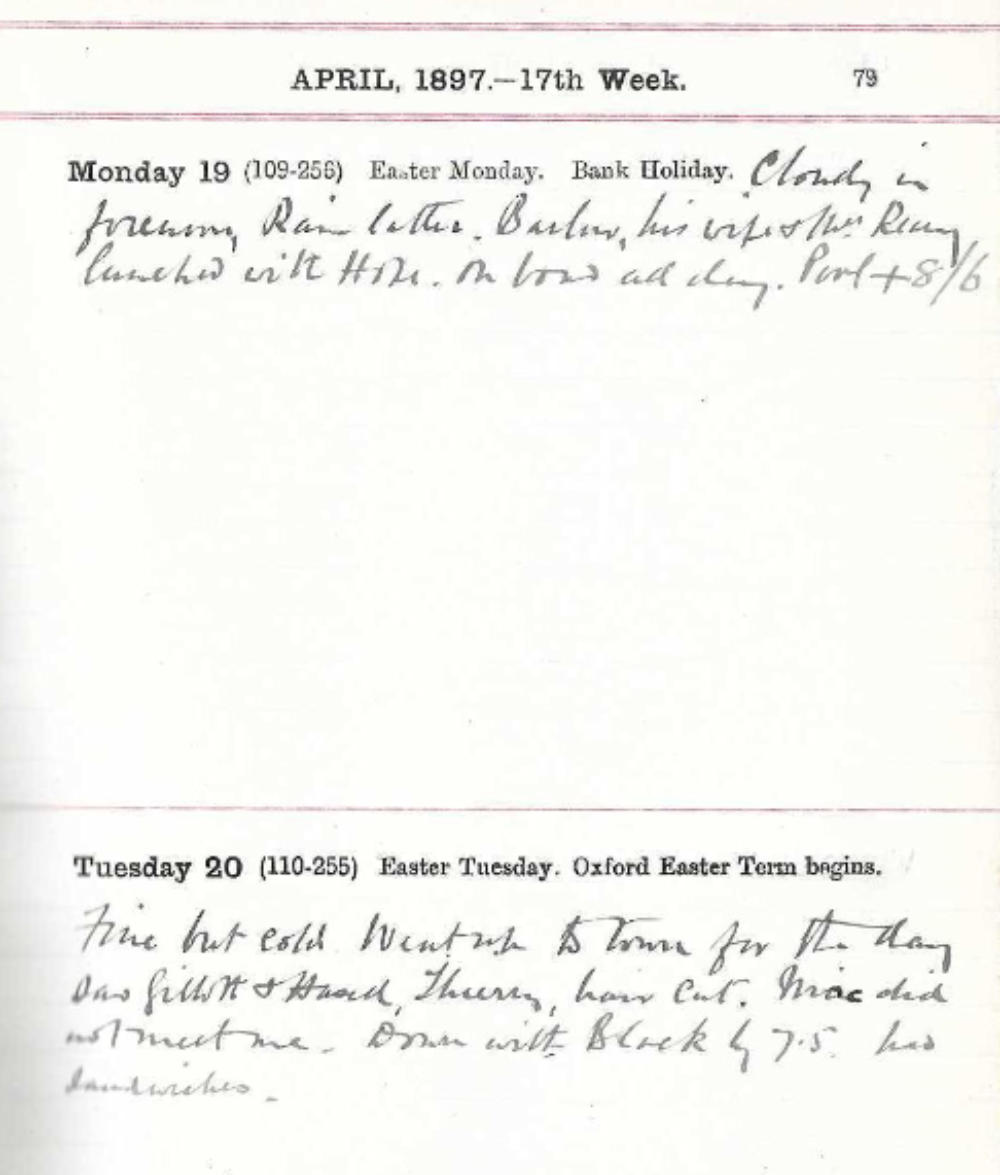 APRIL, 1897.—17th Week. 79
Monday 19 (109-256) Easter Monday. Bank Holiday. Cloudy in
forenoon, Rain latter. Barlow, his wife & Mrs
lunched with Hole. On board all day. Pool + 8/6
Tuesday 20 (110-255) Easter Tuesday. Oxford Easter Term begins.
Fine but cold Went up to town for the day
Saw Gillott & , Thierry, hair cut. Mac did
not meet me. Down with Black by 7.5. had
sandwiches.